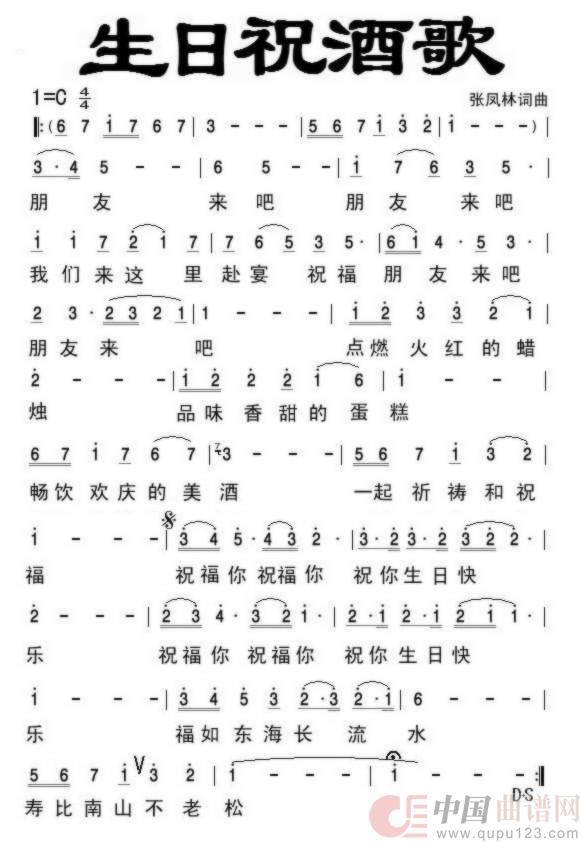 生日祝酒歌
1=C 4/4 张凤林词曲
‖:(6 7 1 7 6 7 | 3 - - - | 5 6 7 1 3 2 | 1 - - - ) |
3 · 4 5 - - | 6 5 - - | 1 7 6 3 5 · |
朋 友 来 吧 朋 友 来 吧
1 1 7 2 1 7 | 7 6 5 3 5 · | 6 1 4 · 5 3 · |
我们来这 里赴宴 祝福 朋友来吧
2 3 · 2 3 2 1 | 1 - - - | 1 2 3 3 2 1 |
朋友来 吧 点燃 火红的蜡
2 - - - | 1 2 2 2 1 6 | 1 - - - |
烛 品味香甜的 蛋糕
6 7 1 7 6 7 | 3 - - - | 5 6 6 7 1 3 2 |
畅饮 欢庆的美酒 一起 祈祷和祝
1 - - - | 3 4 5 · 4 3 2 · | 3 · 2 3 · 2 3 2 2 · |
福 祝福你 祝福你 祝你生日快
2 - - - | 2 3 4 · 3 2 1 · | 2 · 1 2 · 1 2 1 1 · |
乐 祝福你 祝福你 祝你生日快
1 - - - | 3 4 4 5 3 2 · 3 2 · 1 | 6 - - - |
乐 福如东海长 流 水
5 6 7 1 V 3 2 | 1 - - - | 1 - - :‖
D·S
寿比南山不老松
中国曲谱网
www.qupu123.com